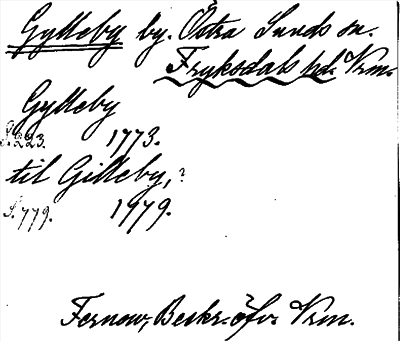 Gylleby by. Östra Sunds sn.
Fryksdals hd. Vrm.
Gylleby
S. 223. 1773.
til Gilleby,?
S. 779. 1779.
Fernow, Beskr. öfv. Vrm.